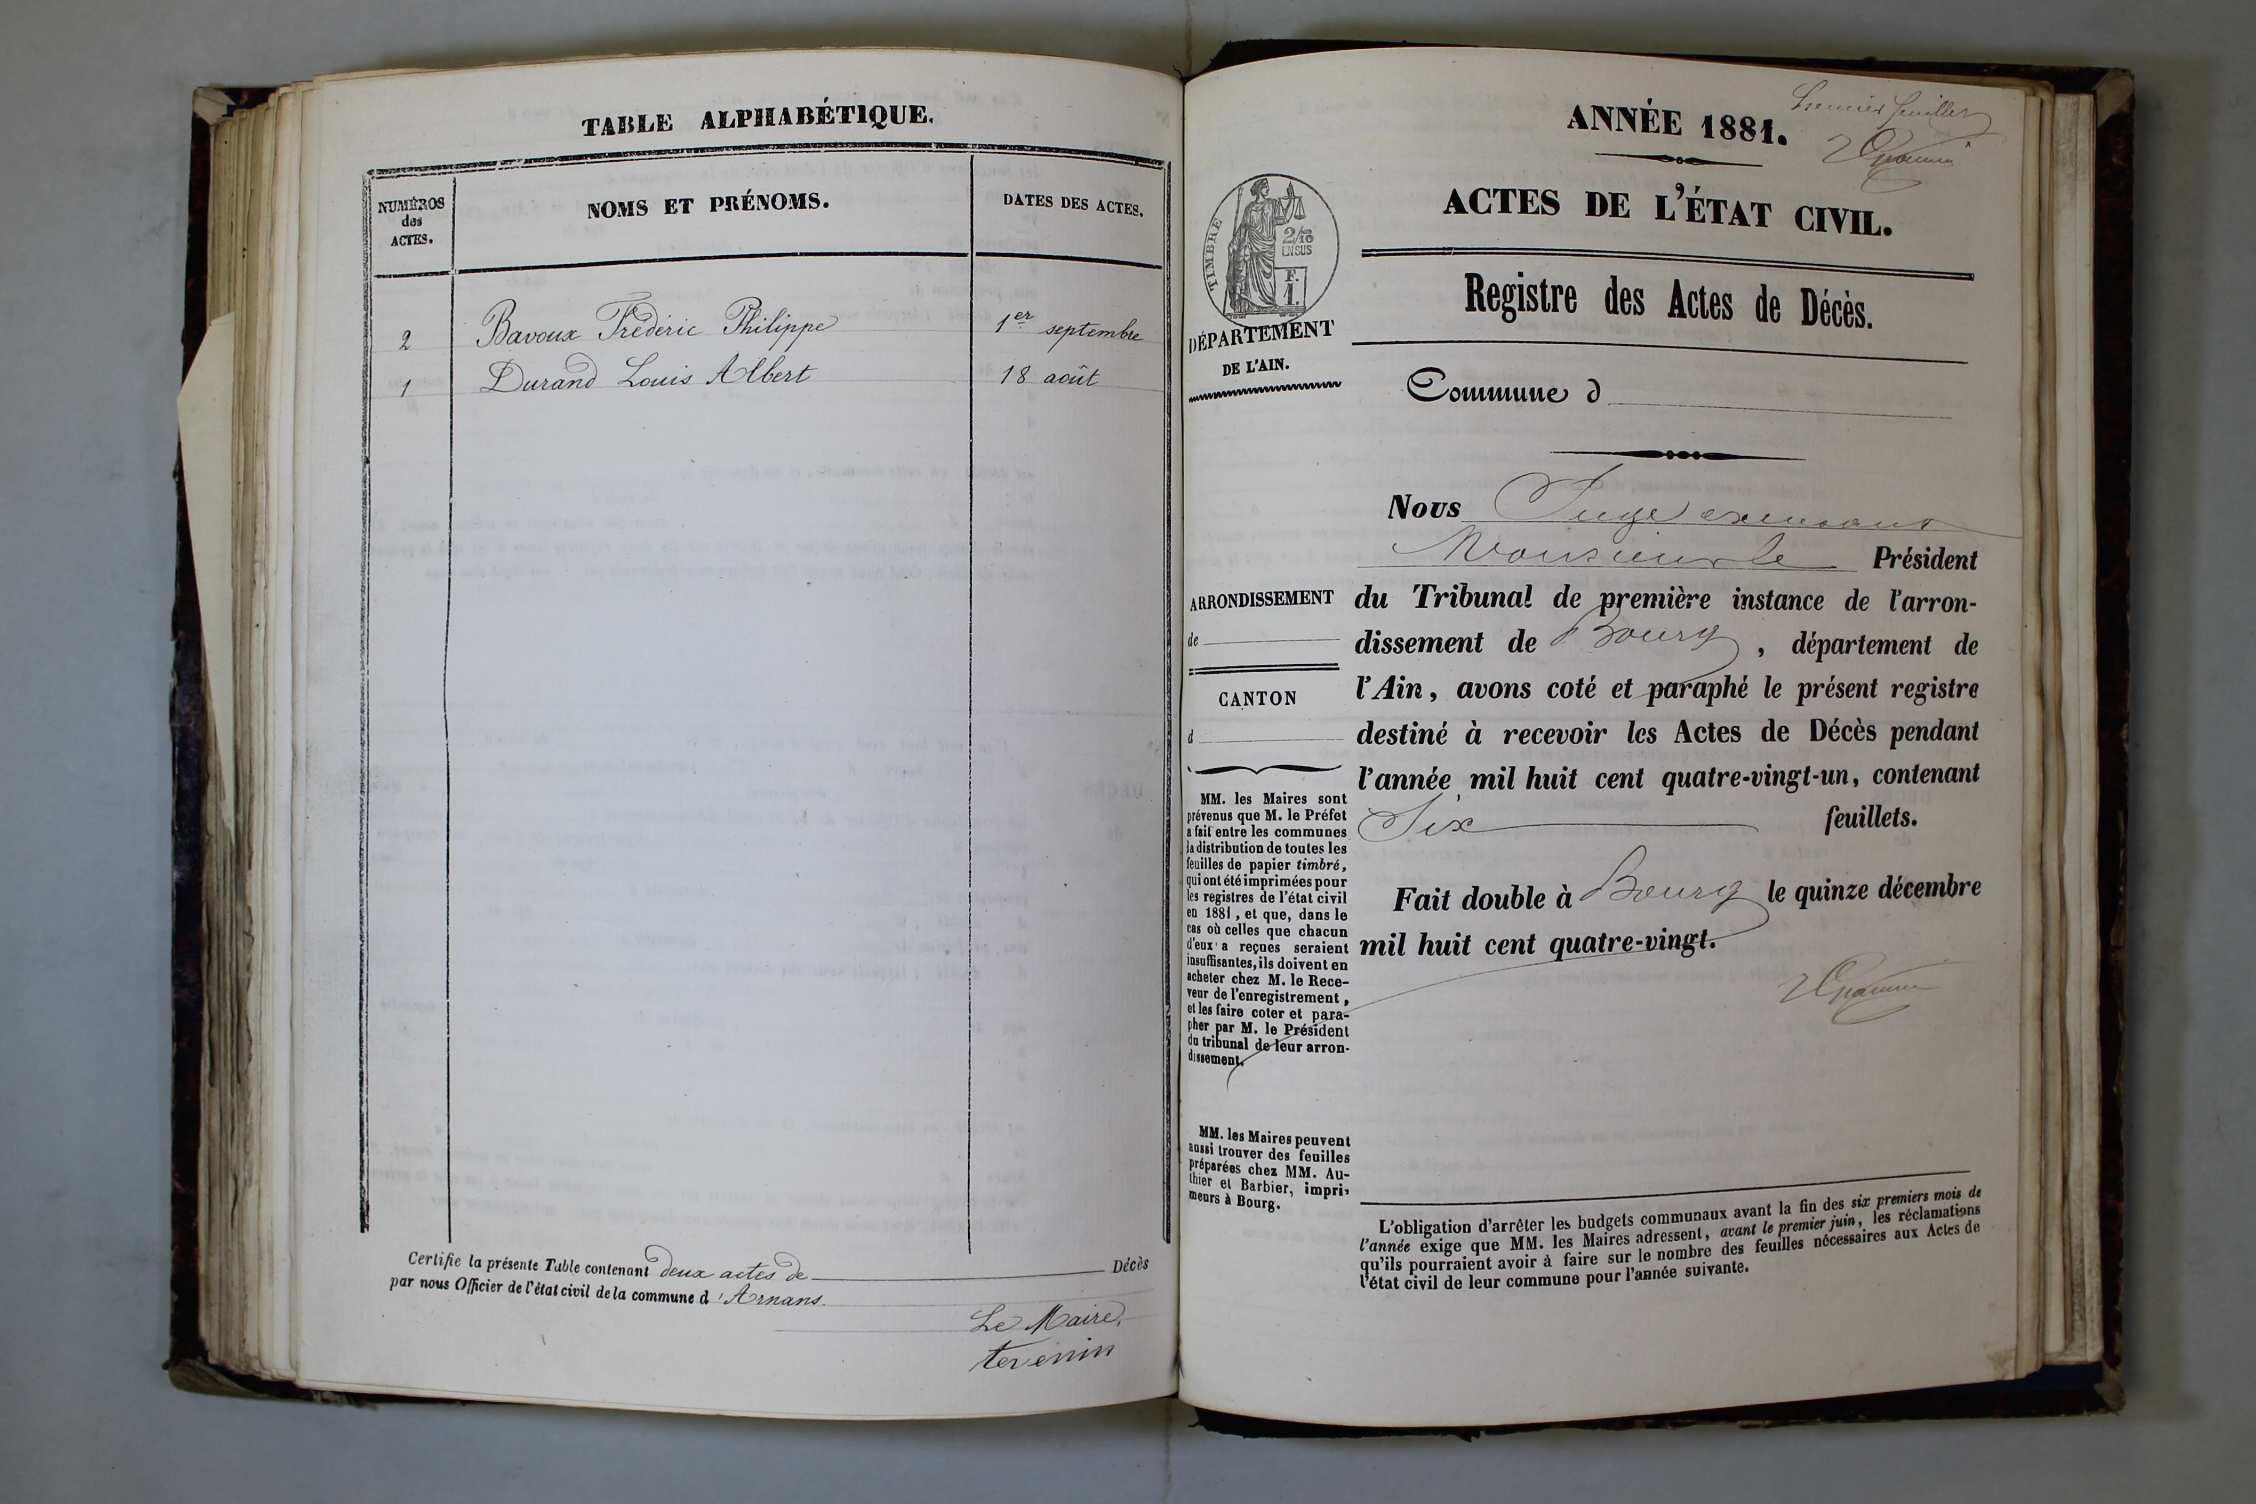 TABLE ALPHABÉTIQUE.
NUMÉROS
des
ACTES.
NOMS ET PRÉNOMS.
DATES DES ACTES.
2 Bavoux Frédéric Philippe 1er septembre
1 Durand Louis Albert 18 août
Certifie la présente Table contenant deux actes de Décès
par nous Officier de l'état civil de la commune d'Arnans.
Le Maire,
Tevenin
Premier feuillet
ANNÉE 1881.
ACTES DE L'ÉTAT CIVIL.
TIMBRE
2/10
EN SUS
F.
1.
DÉPARTEMENT
DE L'AIN.
Registre des Actes de Décès.
Commune d
ARRONDISSEMENT
de
CANTON
d
MM. les Maires sont
prévenus que M. le Préfet
a fait entre les communes
la distribution de toutes les
feuilles de papier timbré,
qui ont été imprimées pour
les registres de l'état civil
en 1881, et que, dans le
cas où celles que chacun
d'eux a reçues seraient
insuffisantes, ils doivent en
acheter chez M. le Rece-
veur de l'enregistrement,
et les faire coter et para-
pher par M. le Président
du tribunal de leur arron-
dissement.
MM. les Maires peuvent
aussi trouver des feuilles
préparées chez MM. Au-
thier et Barbier, impri-
meurs à Bourg.
Nous Juge exerçant
Monsieur le Président
du Tribunal de première instance de l'arron-
dissement de Bourg, département de
l'Ain, avons coté et paraphé le présent registre
destiné à recevoir les Actes de Décès pendant
l'année mil huit cent quatre-vingt-un, contenant
Six feuillets.
Fait double à Bourg le quinze décembre
mil huit cent quatre-vingt.
L'obligation d'arrêter les budgets communaux avant la fin des six premiers mois de
l'année exige que MM. les Maires adressent, avant le premier juin, les réclamations
qu'ils pourraient avoir à faire sur le nombre des feuilles nécessaires aux Actes de
l'état civil de leur commune pour l'année suivante.